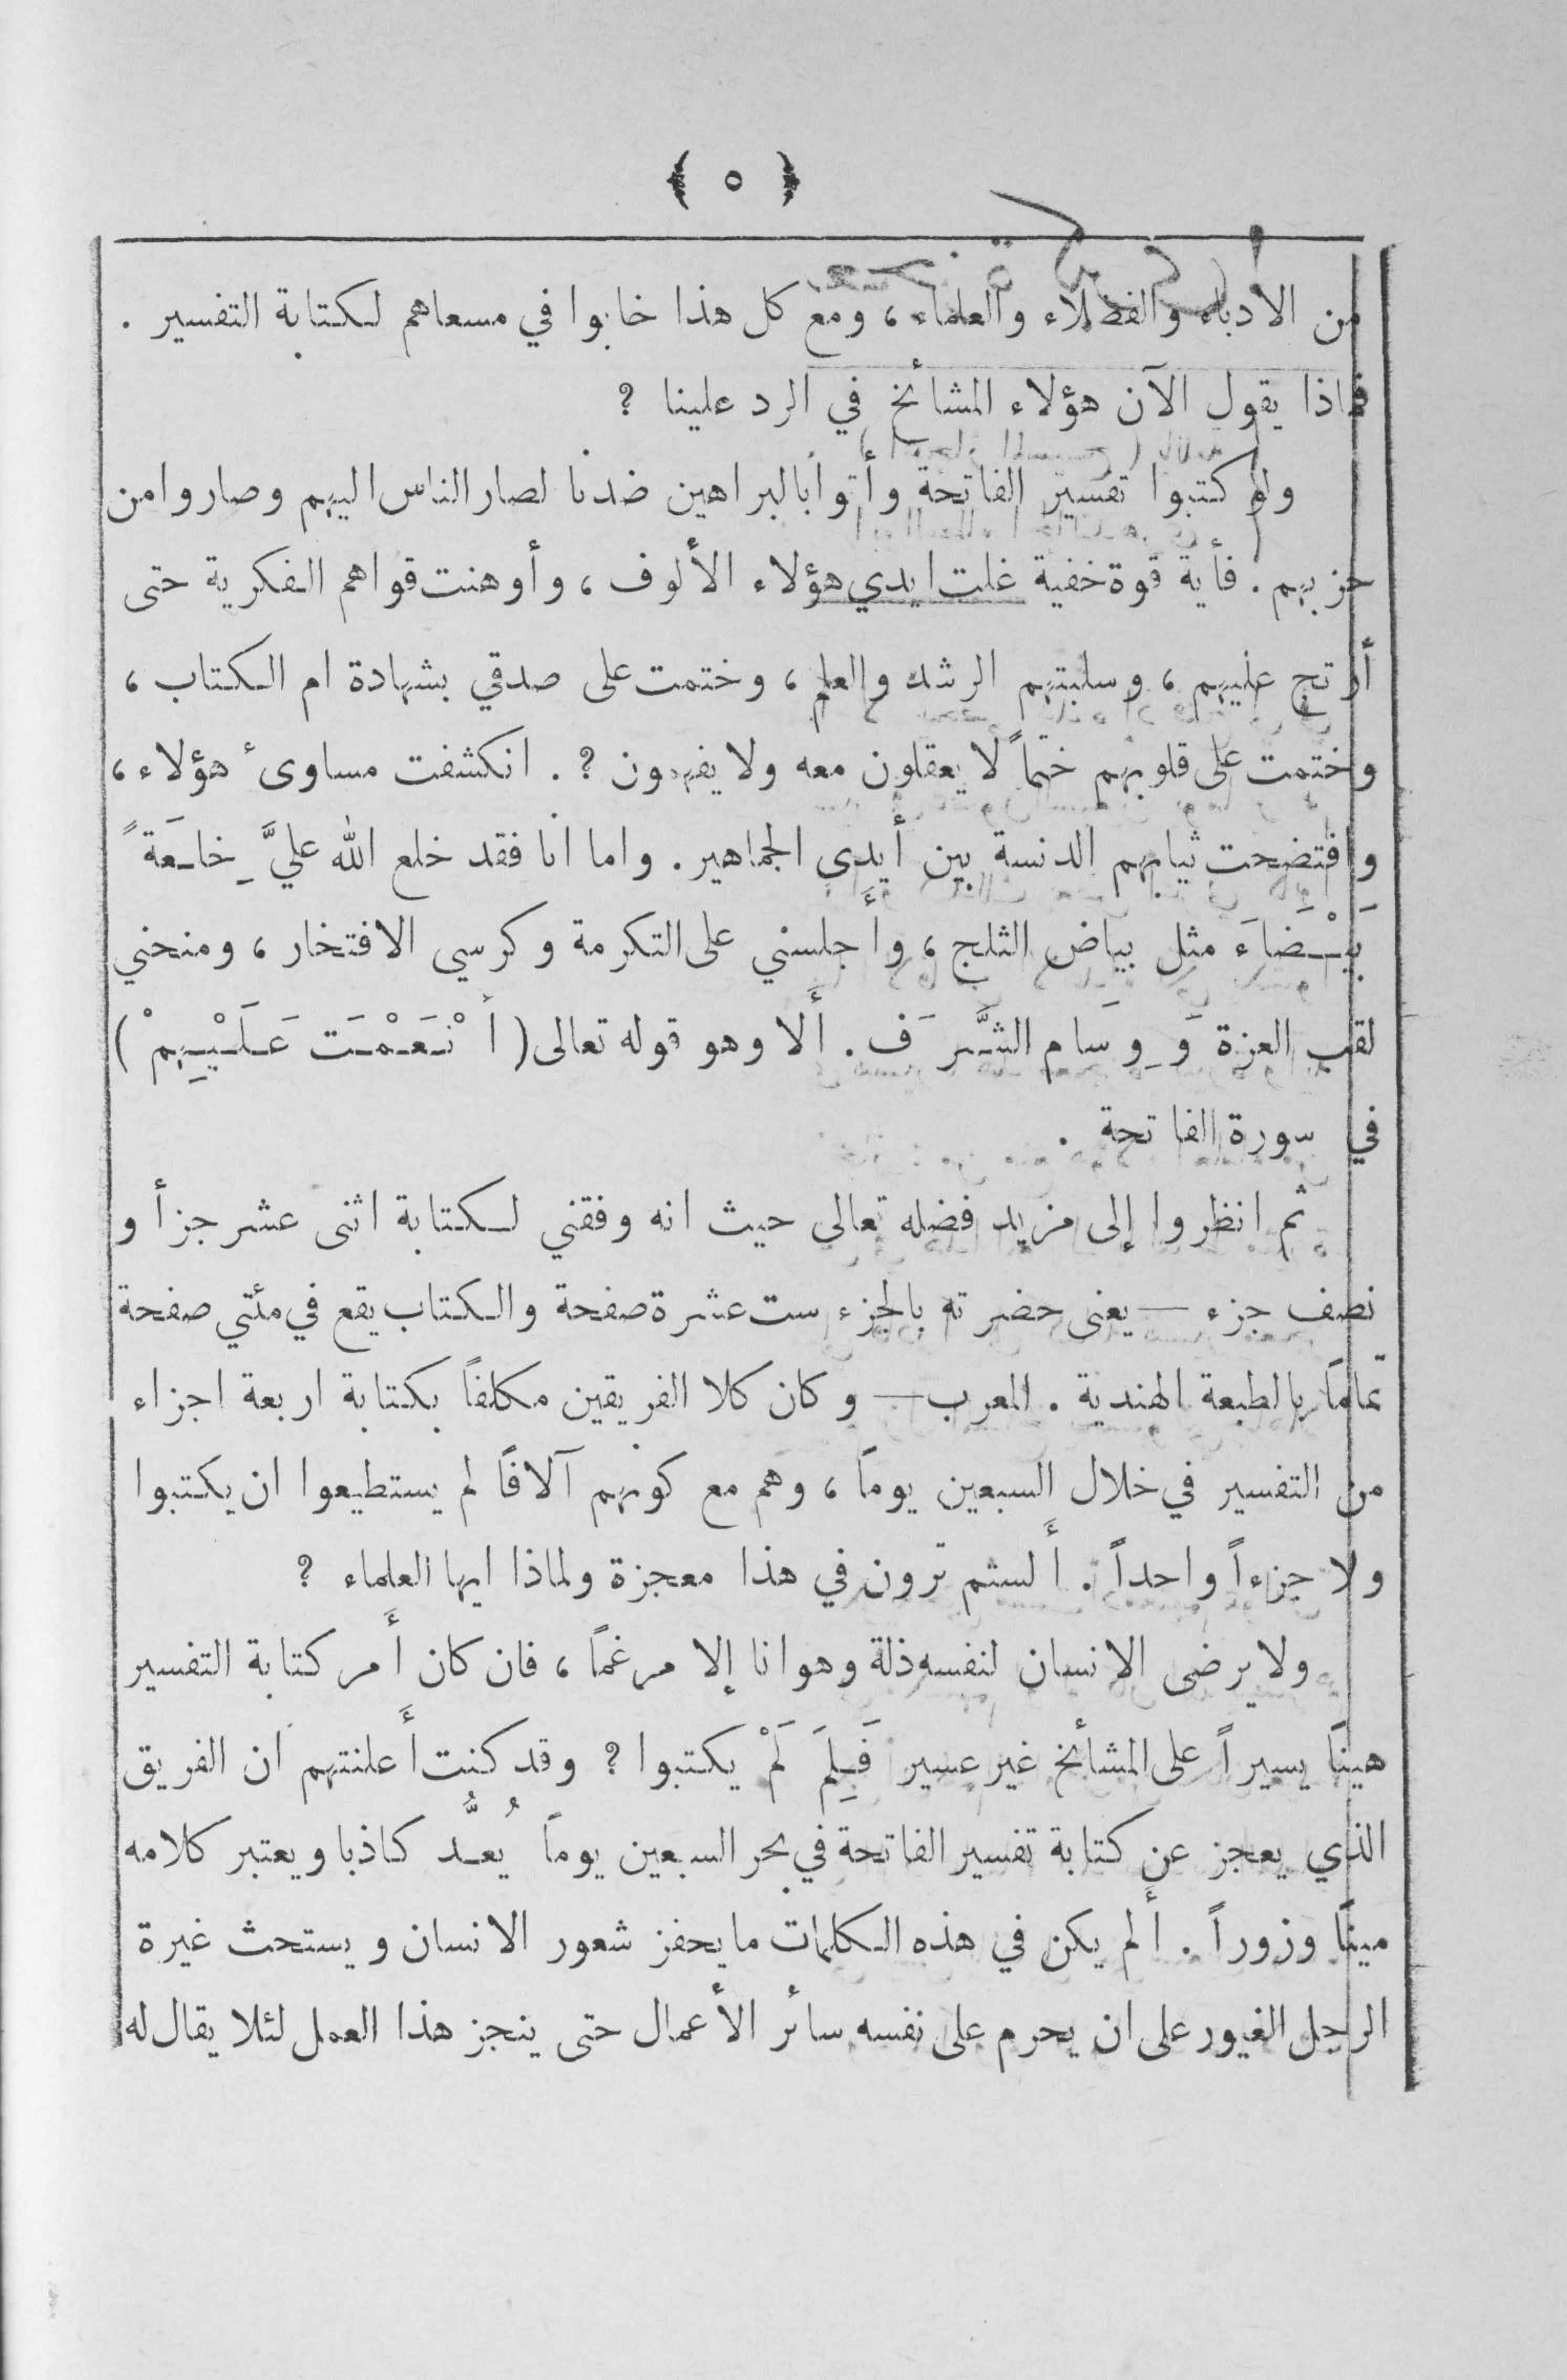 ﴿ ٥ ﴾
من الادباء والفضلاء والعلماء ، ومع كل هذا خابوا في مسعاهم لكتابة التفسير .
فماذا يقول الآن هؤلاء المشائخ في الرد علينا ؟
ولو كتبوا تفسير الفاتحة وأتوا بالبراهين ضدنا لصار الناس اليهم وصاروا من
حزبهم . فأية قوة خفية غلت ايدي هؤلاء الألوف ، وأوهنت قواهم الفكرية حتى
أرتج عليهم ، وسلبتهم الرشد والعلم ، وختمت على صدقي بشهادة ام الكتاب ،
وختمت على قلوبهم ختماً لا يعقلون معه ولا يفهمون ؟ . انكشفت مساوىء هؤلاء ،
وافتضحت ثيابهم الدنسة بين أيدي الجماهير . واما انا فقد خلع الله عليَّ خِلعَةً
بَيْضَاءَ مثل بياض الثلج ، وأجلسني على التكرمة وكرسي الافتخار ، ومنحني
لقب العزة وَوِسَام الشَّرَف . أَلا وهو قوله تعالى ( أنْعَمْتَ عَلَيْهِمْ )
في سورة الفاتحة .
ثم انظروا إلى مزيد فضله تعالى حيث انه وفقني لكتابة اثنى عشر جزأ و
نصف جزء — يعنى حضرته بالجزء ست عشرة صفحة والكتاب يقع في مئتي صفحة
تماماً بالطبعة الهندية . المعرب — وكان كلا الفريقين مكلفاً بكتابة اربعة اجزاء
من التفسير في خلال السبعين يوماً ، وهم مع كونهم آلافاً لم يستطيعوا ان يكتبوا
ولا جزءاً واحداً . أَلستم ترون في هذا معجزة ولماذا ايها العلماء ؟
ولا يرضى الانسان لنفسه ذلة وهوانا إلا مرغماً ، فان كان أَمر كتابة التفسير
هيناً يسيراً على المشأئخ غير عسير فَلِمَ لَمْ يكتبوا ؟ وقد كنت أَعلنتهم ان الفريق
الذي يعجز عن كتابة تفسير الفاتحة في بحر السبعين يوماً يُعدُّ كاذبا ويعتبر كلامه
ميناً وزوراً . أَلم يكن في هذه الكلمات ما يحفز شعور الانسان ويستحث غيرة
الرجل الغيور على ان يحرم على نفسه سائر الأعمال حتى ينجز هذا العمل لئلا يقال له